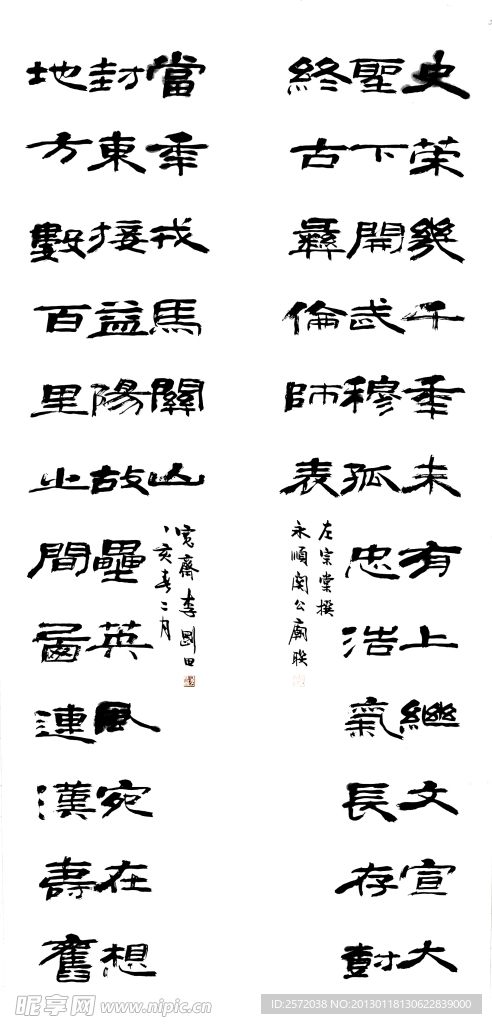 史榮幾千年未有上繼文宣大
聖下開武穆孤忠浩氣長存對
終古彝倫師表
左宗棠撰
永順關公廟聯
地方數百里之間連漢壽舊
封東接益陽故壘英風宛在想
當年戎馬關山
寬齋李剛田
丁亥春二月
昵图网 www.nipic.cn
ID:2572038 NO:20130118130622839000